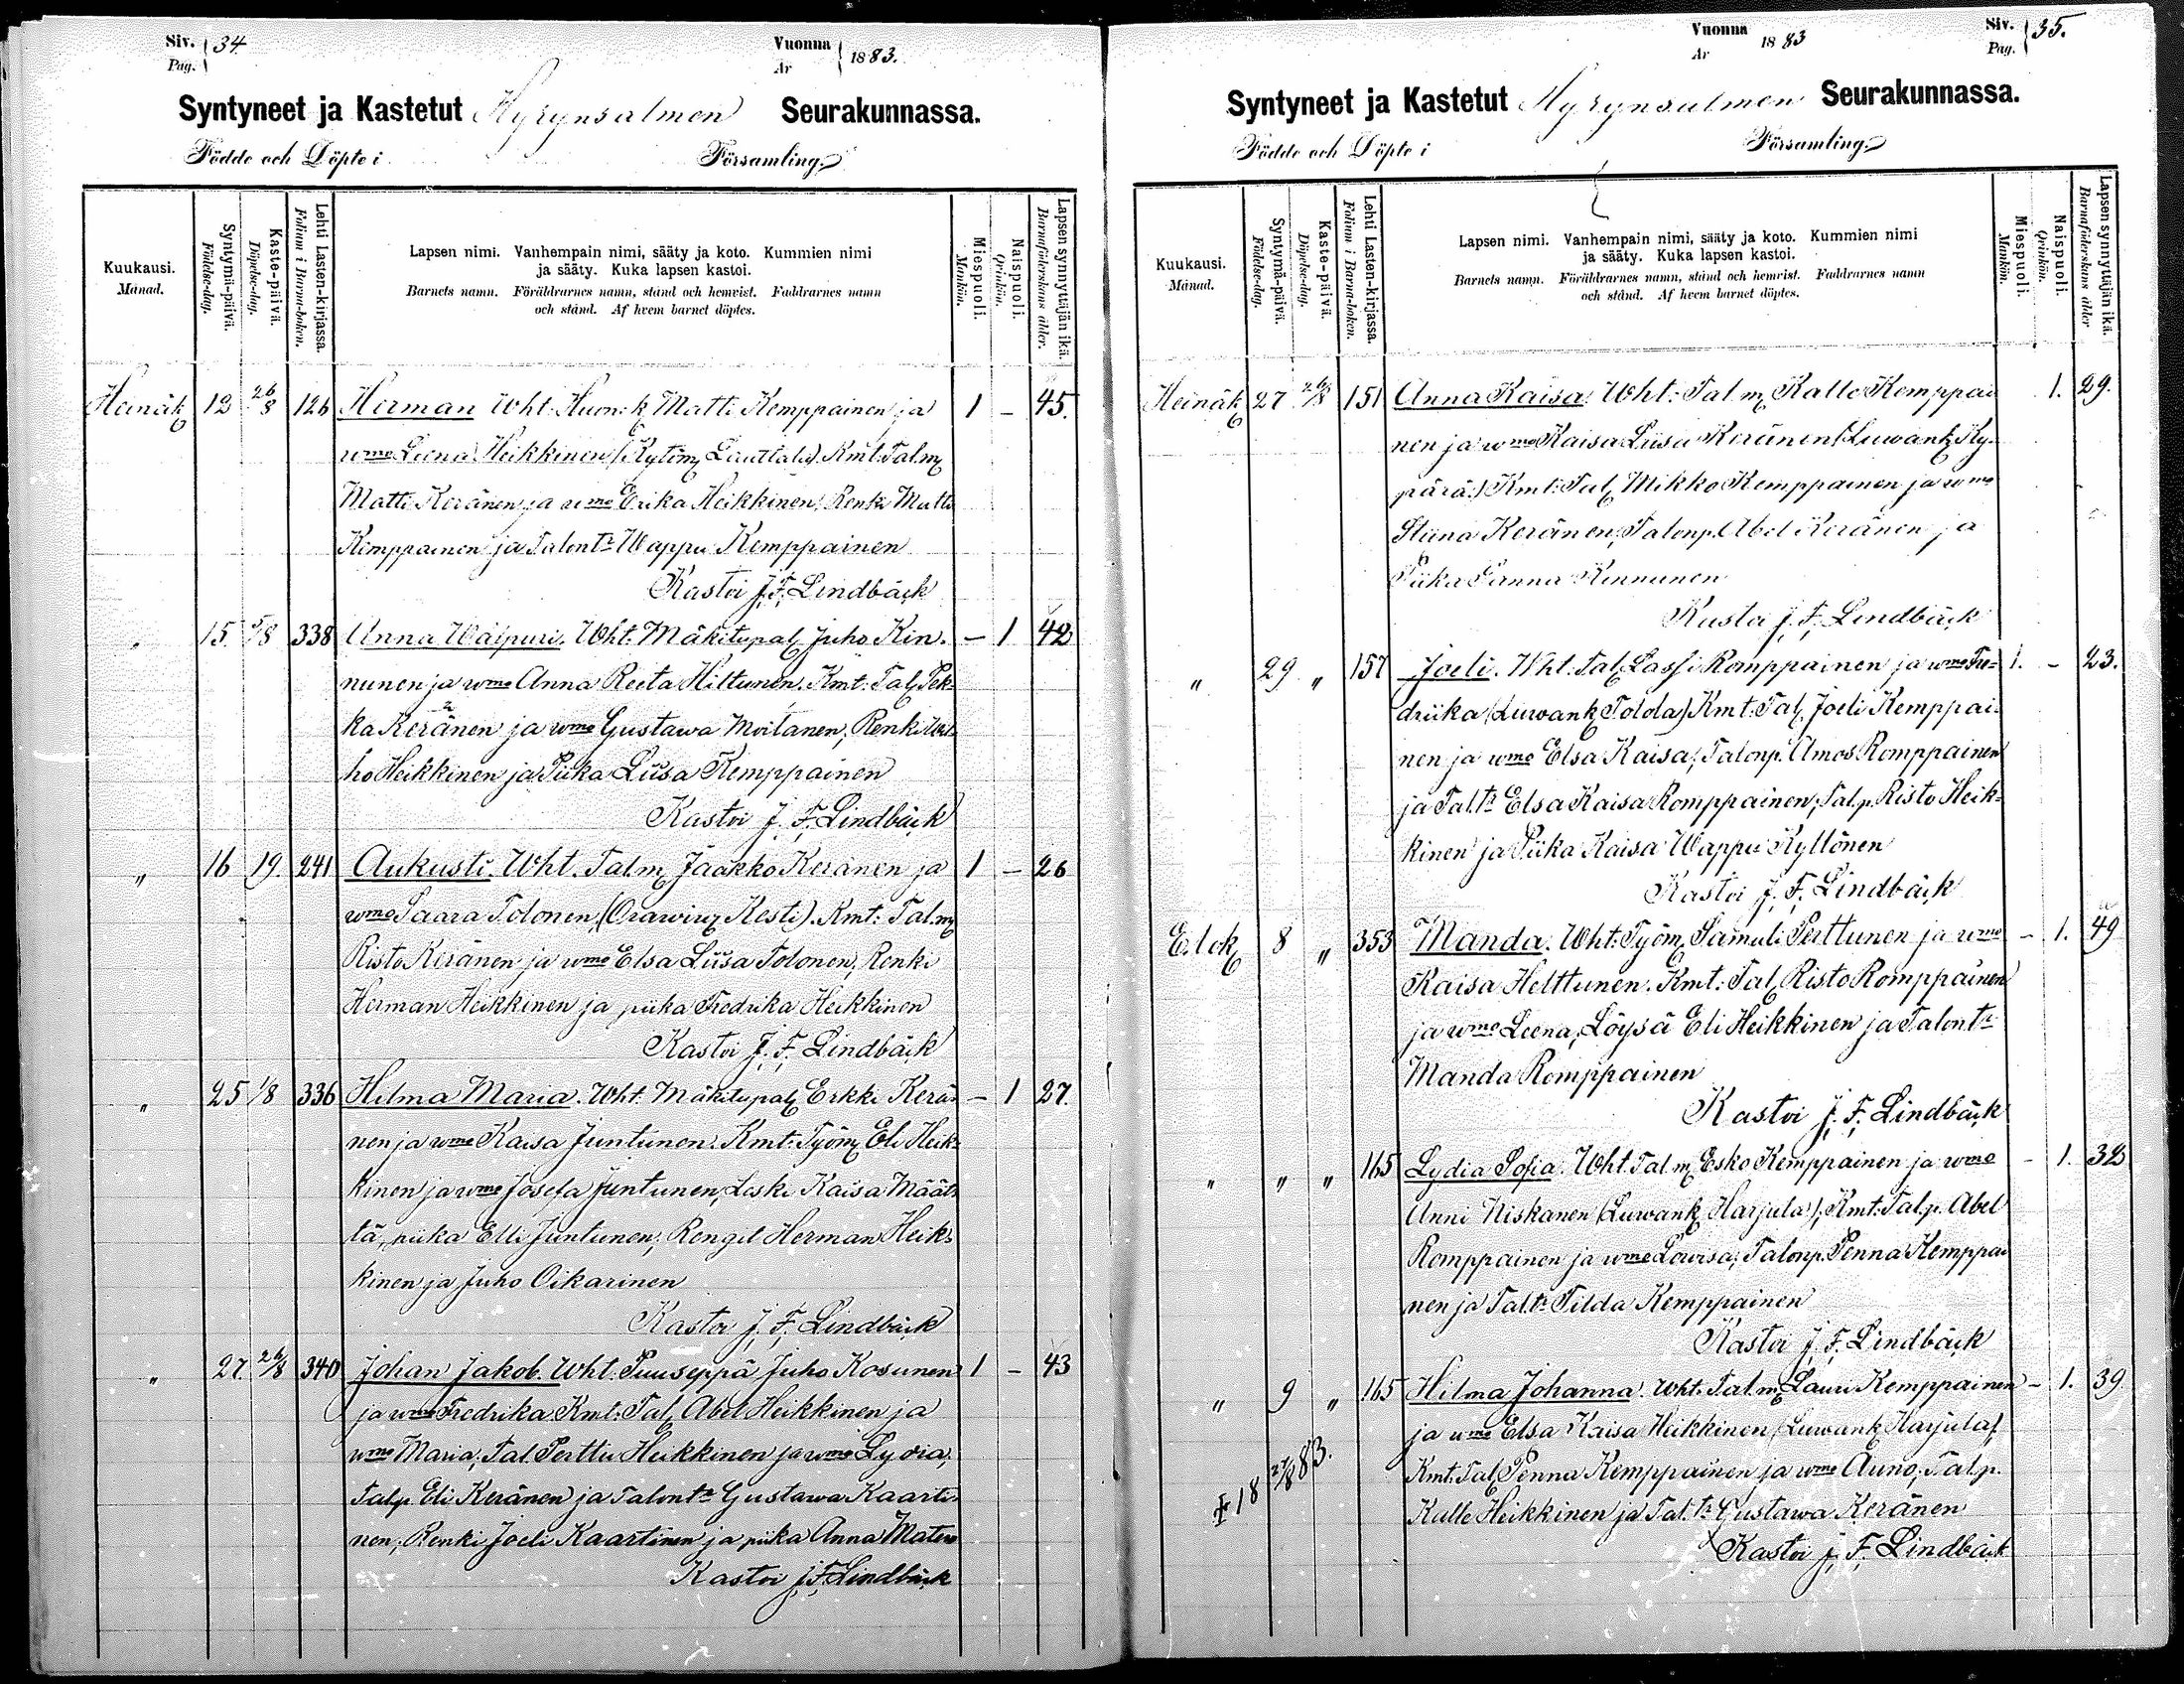 Siv. 34.
Pag.
Vuonna 1883.
År
Syntyneet ja Kastetut Hyrynsalmen Seurakunnassa.
Födde och Döpte i Församling.
Kuukausi.
Månad.
Syntymä-päivä.
Födelse-dag.
Kaste-päivä.
Döpelse-dag.
Lehti Lasten-kirjassa.
Folium i Barna-boken.
Lapsen nimi. Vanhempain nimi, sääty ja koto. Kummien nimi
ja sääty. Kuka lapsen kastoi.
Barnets namn. Föräldrarnes namn, stånd och hemvist. Faddrarnes namn
och stånd. Af hvem barnet döptes.
Miespuoli.
Mankön.
Naispuoli.
Qvinkön.
Lapsen synnyttäjän ikä.
Barnaföderskans ålder.
Heinäk 12 26/8 126 Herman Wht: Huon:k Matti Kemppainen ja 1 - 45.
wmo Leena Heikkinen (Kytöm Lauttala). Kmt: Talm
Matti Keränen ja wmo Erika Heikkinen; Renki Matti
Kemppainen ja Talontr Wappu Kemppainen
Kastoi J. F. Lindbäck
15. 5/8 338 Anna Walpuri. Wht: Mäkitupal Juho Kin- - 1 42
nunen ja wmo Anna Reeta Hiltunen. Kmt: Tal Pek-
ka Keränen ja wmo Gustawa Moilanen, Renki
ho Heikkinen ja Piika Liisa Kemppainen
Kastoi J. F. Lindbäck
" 16 19. 241 Aukusti. Wht. Talm Jaakko Keränen ja 1 - 26
wmo Saara Tolonen, (Orawiw Kesti). Kmt: Talm
Risto Keränen ja wmo Elsa Liisa Tolonen, Renki
Herman Heikkinen ja piika Fredrika Heikkinen
Kastoi J. F. Lindbäck
" 25 1/8 336 Hilma Maria. Wht. Mäkitupal Erkki Kerä- - 1 27.
nen ja wmo Kaisa Juntunen. Kmt: Työm Eli Heik-
kinen ja wmo Josefa Juntunen, Leski Kaisa Määt-
tä, piika Elli Juntunen, Rengit Herman Heik-
kinen ja Juho Oikarinen
Kastoi J. F. Lindbäck
" 27. 26/8 340 Johan Jakob. Wht: Puuseppä Juho Kosunen 1 - 43
ja wmo Fredrika. Kmt: Tal Abel Heikkinen ja
wmo Maria, Tal. Perttu Heikkinen ja wmo Lydia,
Talp. Eli Keränen ja Talontr Gustawa Kaarti-
nen; Renki Joeli Kaartinen ja piika Anna
Kastoi J. F. Lindbäck
Vuonna 1883
År
Siv. 35.
Pag.
Syntyneet ja Kastetut Hyrynsalmen Seurakunnassa.
Födde och Döpte i Församling.
Kuukausi.
Månad.
Syntymä-päivä.
Födelse-dag.
Kaste-päivä.
Döpelse-dag.
Lehti Lasten-kirjassa.
Folium i Barna-boken.
Lapsen nimi. Vanhempain nimi, sääty ja koto. Kummien nimi
ja sääty. Kuka lapsen kastoi.
Barnets namn. Föräldrarnes namn, stånd och hemvist. Faddrarnes namn
och stånd. Af hvem barnet döptes.
Miespuoli.
Mankön.
Naispuoli.
Qvinkön.
Lapsen synnyttäjän ikä.
Barnaföderskans ålder
Heinäk 27 26/8 151 Anna Kaisa. Wht: Talm Kalle Kemppai 1. 29.
nen ja wmo Kaisa Liisa Keränen (Luwank Ky-
pärä). Kmt: Tal Mikko Kemppainen ja wmo
Stiina Keränen, Talonp. Abel Keränen ja
Piika Sanna Kinnunen
Kastoi J. F. Lindbäck
" 29 " 157 Joeli. Wht. Tal Lassi Romppainen ja wmo Fre- 1. - 23.
driika (Luwank Tolola) Kmt: Tal Joeli Kemppai-
nen ja wmo Elsa Kaisa; Talonp. Amos Romppainen
ja Tal.tr Elsa Kaisa Romppainen; Tal.p. Risto Heik-
kinen ja Piika Kaisa Wappu Kyllönen
Kastoi J. F. Lindbäck
Elok 8 " 353 Manda. Wht: Työm Samuli Perttunen ja wmo - 1. 49
Kaisa Helttunen. Kmt: Tal Risto Romppainen
ja wmo Leena, Löysä Eli Heikkinen ja Talontr
Manda Romppainen
Kastoi J. F. Lindbäck
" " " 165 Lydia Sofia. Wht. Talm Esko Kemppainen ja wmo - 1. 32
Anni Niskanen (Luwank Harjula), Kmt: Tal.p. Abel
Romppainen ja wmo Lowisa; Talonp. Penna Kemppai
nen ja Tal.tr Tilda Kemppainen
Kastoi J. F. Lindbäck
" 9 " 165 Hilma Johanna. Wht. Talm Lauri Kemppainen - 1. 39
ja wmo Elsa Kaisa Heikkinen (Luwank Harjula),
Kmt: Tal Penna Kemppainen ja wmo Auno; Talp.
Kalle Heikkinen ja Tal.tr Gustawa Keränen
Kastoi J. F. Lindbäck
† 18 27/8 83.